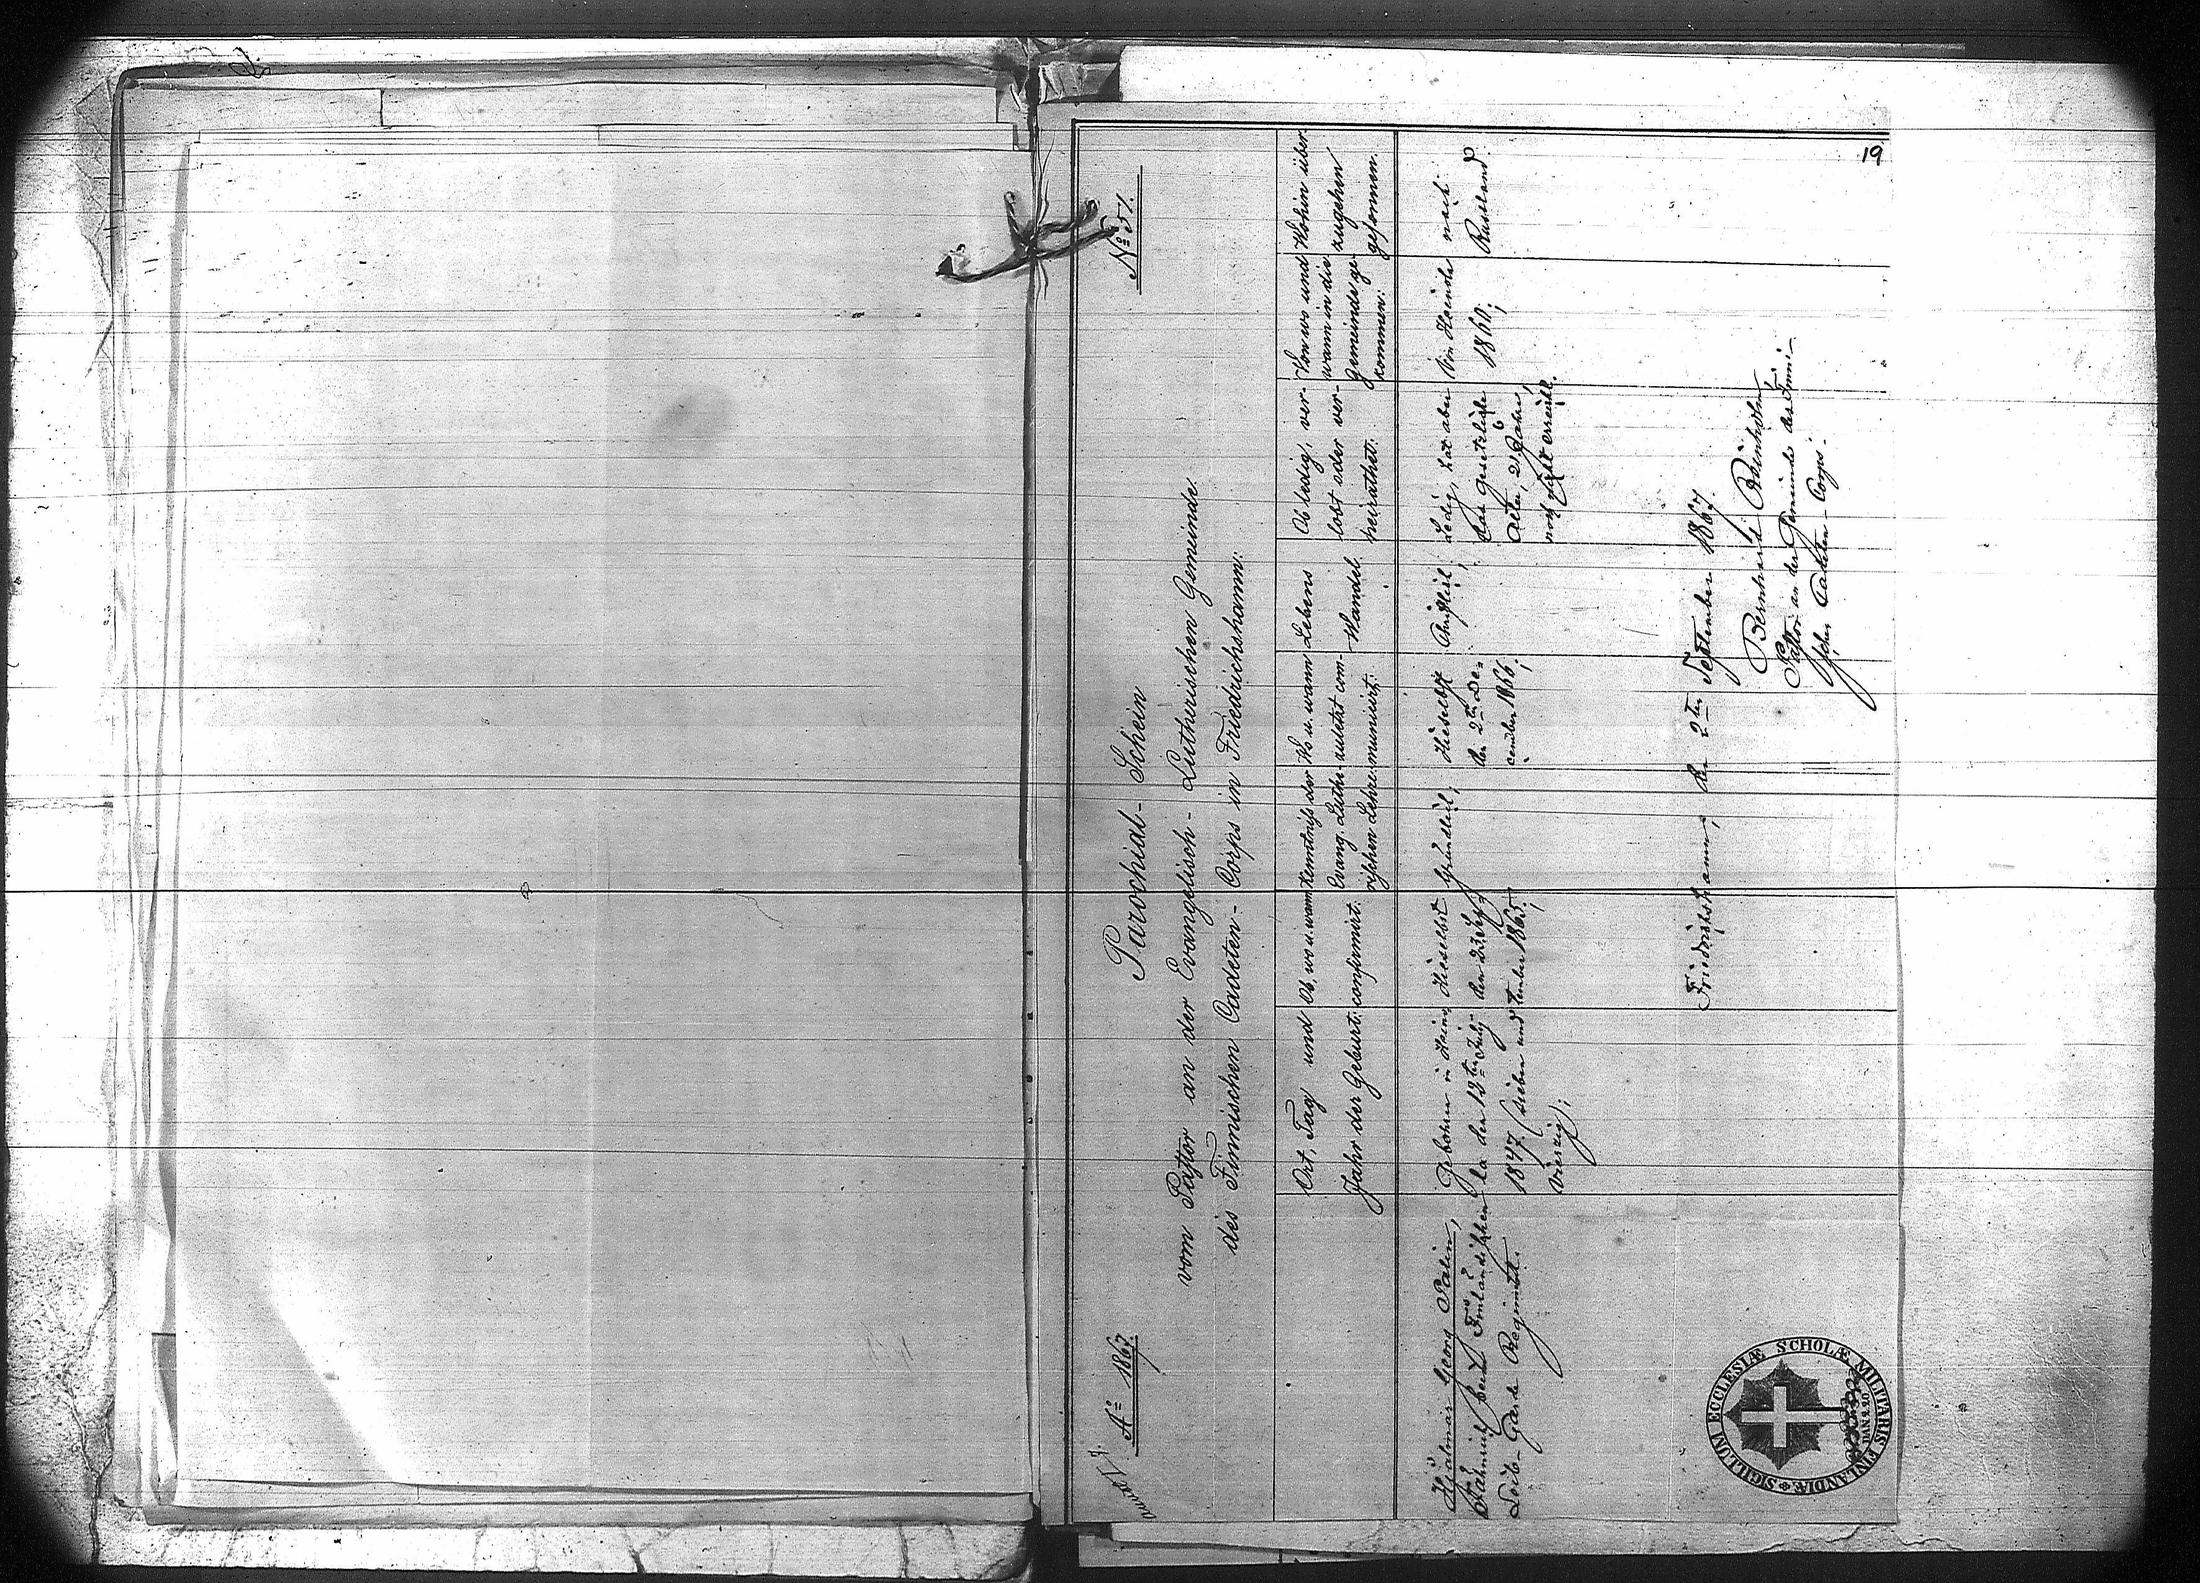 Aº 1867.
Nº 51.
Parochial-Schein
vom Pastor an der Evangelisch-Lutherischen Gemeinde
des Finnischen Cadeten-Corps in Friedrichshamm:
Ort, Tag und
Jahr der Geburt:
Ob, wo u. wann
confirmirt.
Kenntniß der
Evang. Luthe-
rischen Lehre:
Wo u. wann
zuletzt com-
municirt:
Lebens
Wandel.
Ob ledig, ver-
lobt oder ver-
heirathet:
Von wo und
wann in die
Gemeinde ge-
kommen:
Wohin über-
zugehen
gesonnen.
Hjalmar Georg Palin,
Fähnrich beim Finländischen
Leib-Garde Regiment.
Gebohren in Heino
la den 12ten July
1847 (sieben und
vierzig);
Hieselbst
den
tember 1865;
Gründlich;
Hieselbst
den 2ten De-
cember 1866;
Christlich;
Ledig, hat aber
das gesetzliche
Alter, 21 Jahre,
noch nicht erreicht.
Von Heinola
1860;
nach
Russland.
Friedrichshamm, den 2ten September 1867.
Bernhard
Pastor an der Gemeinde des Finni-
schen Cadeten-Corps.
SIGILLUM ECCLESIÆ SCHOLÆ MILITARIS FINLANDIÆ
19